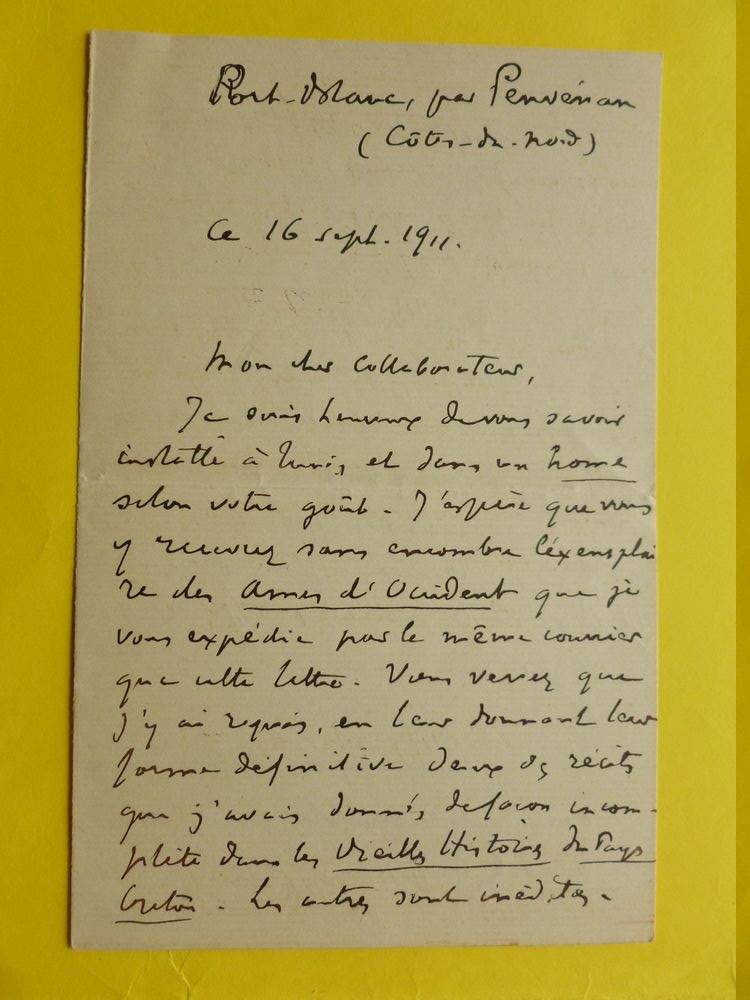 Port-Blanc, par Penvénan
(Côtes-du-Nord)
Ce 16 sept. 1911.
Mon cher collaborateur,
Je suis heureux de vous savoir
installé à Tunis, et dans un home
selon votre goût. J'espère que vous
y recevrez sans encombre l'éxemplai
re des Ames d'Occident que je
vous expédie par le même courrier
que cette lettre. Vous verrez que
j'y ai repris, en leur donnant leur
forme définitive deux des récits
que j'avais donnés de façon incom-
plète dans les Vieilles Histoires du Pays
breton. Les autres sont inédites.